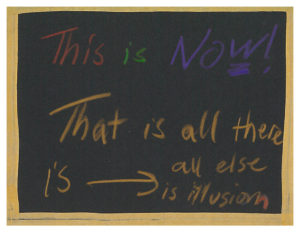 This is Now!
That is all there
is → all else
is illusion